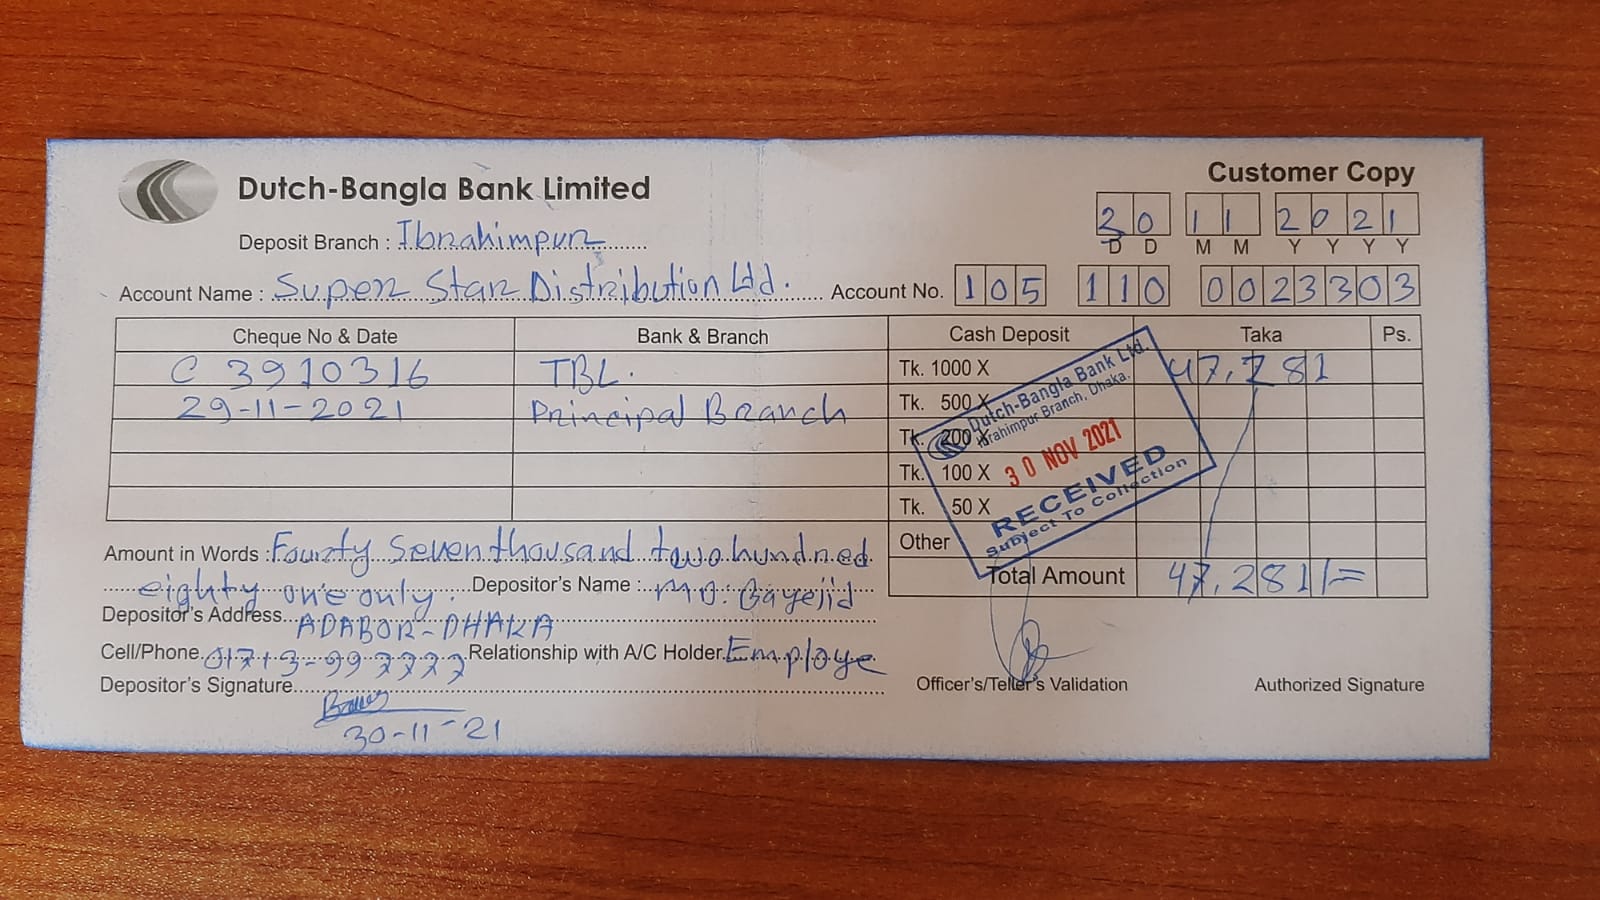 Customer Copy
Dutch-Bangla Bank Limited
30 11 2021
D D M M Y Y Y Y
Deposit Branch : Ibrahimpur
Account Name : Super Star Distribution Ltd. Account No. 105 110 0023303
Cheque No & Date Bank & Branch Cash Deposit Taka Ps.
C 3910316 TBL. Tk. 1000 X 47,281
29-11-2021 Principal Branch Tk. 500 X
Tk. 200 X
Tk. 100 X
Tk. 50 X
Other
Dutch-Bangla Bank Ltd.
Ibrahimpur Branch, Dhaka.
30 NOV 2021
RECEIVED
Subject To Collection
Amount in Words : Fourty Seven thousand two hundred
eighty one only. Depositor's Name : MD. Bayejid
Total Amount 47,281/=
Depositor's Address ADABOR-DHAKA
Cell/Phone Relationship with A/C Holder Employe
Depositor's Signature Officer's/Teller's Validation Authorized Signature
30-11-21